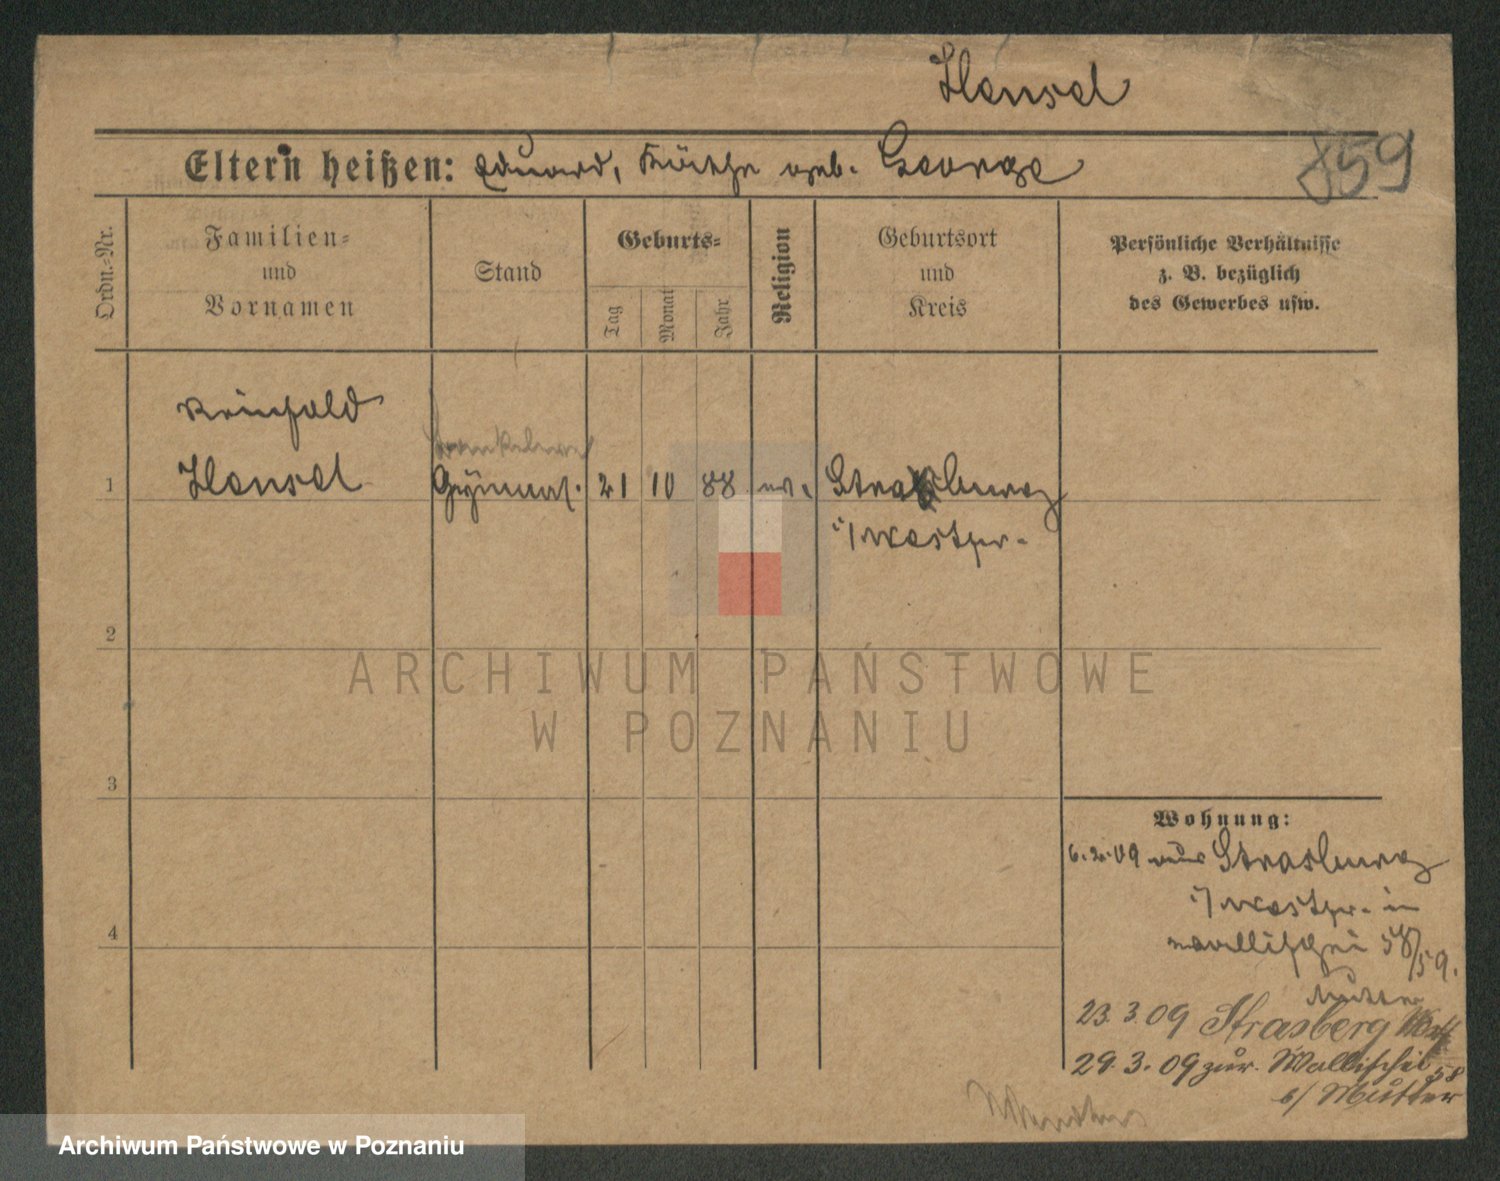 Hensel
Eltern heißen: Eduard, Käthe geb. George
859
Ordn.-Nr.
Familien-
und
Vornamen
Stand
Geburts-
Tag
Monat
Jahr
Religion
Geburtsort
und
Kreis
Persönliche Verhältnisse
z. B. bezüglich
des Gewerbes usw.
Reinhold
1 Hensel Gymnas. 21 10 88 ev. Strasburg
i/Westpr.
2
ARCHIWUM PAŃSTWOWE
W POZNANIU
3
Wohnung:
6.2.09 aus Strasburg
i/Westpr. in
Wallischei 58/59.
4
Mutter
23.3.09 Strasberg
29.3.09 zur. Wallischei 58
b/ Mutter
Archiwum Państwowe w Poznaniu